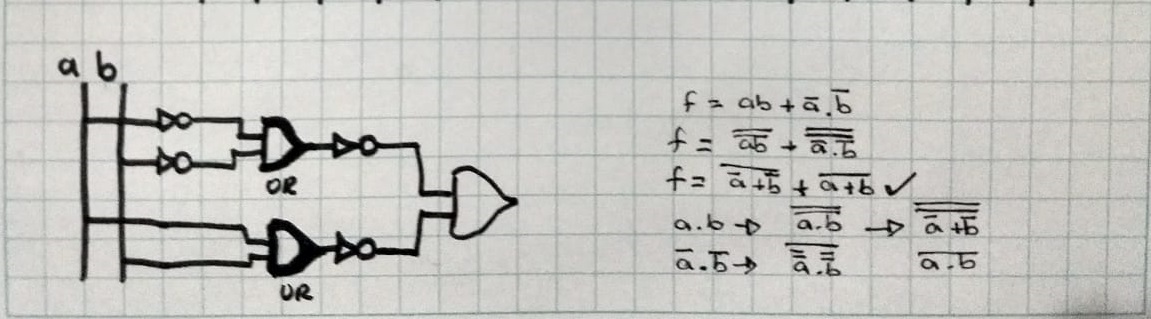 a b
OR
OR
f = ab + a̅.b̅
f = a̿b̿ + a̿̅.̿b̿̅
f = \overline{a̅+b̅} + \overline{a+b} ✓
a.b → \overline{\overline{a.b}} → \overline{\overline{a̅+b̅}}
a̅.b̅ → \overline{a̿.b̿} \overline{a.b}